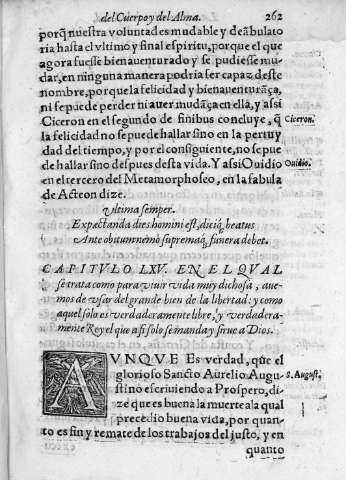 del Cuerpo y del Alma. 262
porq̃ nuestra voluntad es mudable y deãbulato
ria hasta el vltimo y final espiritu, porque el que
agora fuesse bienauenturado y se pudiesse mu-
dar, en ninguna manera podria ser capaz deste
nombre, porque la felicidad y bienauenturãça,
ni se puede perder ni auer mudãça en ella, y assi
Ciceron en el segundo de finibus concluye, q̃ Ciceron.
la felicidad no se puede hallar sino en la pertuy
dad del tiempo, y por el consiguiente, no se pue
de hallar sino despues desta vida. Y assi Ouidio Ouidio.
en el tercero del Metamorphoseo, en la fabula
de Acteon dize.
Vltima semper.
Expectanda dies homini est, diciq̃; beatus
Ante obitum nemo supremaq̃; funera debet.
CAPITVLO LXV. EN EL QVAL
se trata como para viuir vida muy dichosa, aue-
mos de vsar del grande bien de la libertad: y como
aquel solo es verdaderamente libre, y verdadera-
mente Rey el que a si solo se manda y sirue a Dios.
AVNQVE Es verdad, que el
glorioso Sancto Aurelio Augu- S. August.
stino escriuiendo a Prospero, di-
ze que es buena la muerte a la qual
precedio buena vida, por quan-
to es fin y remate de los trabajos del justo, y en
quanto